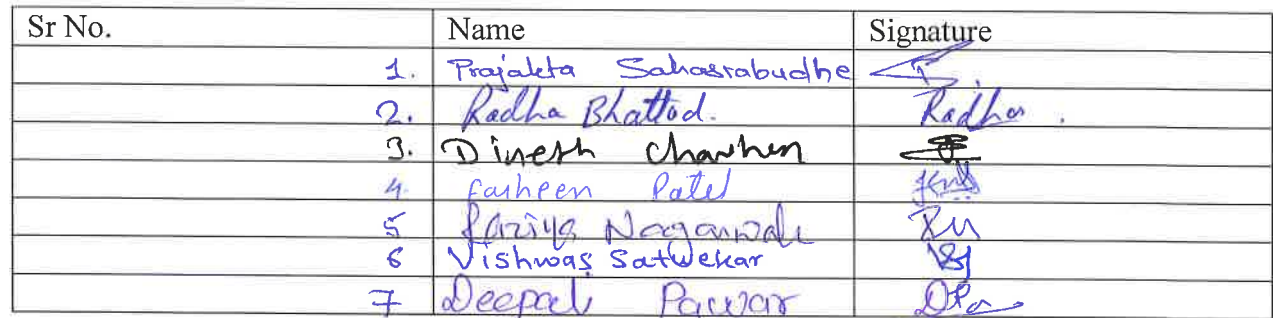 Sr No. Name Signature
1. Prajakta Sahasrabudhe
2. Radha Bhattod. Radha.
3. Dinesh Chavhan
4. Farheen Patel
5 Nagarwale
6 Vishwas Satwekar
7 Deepali Pawar